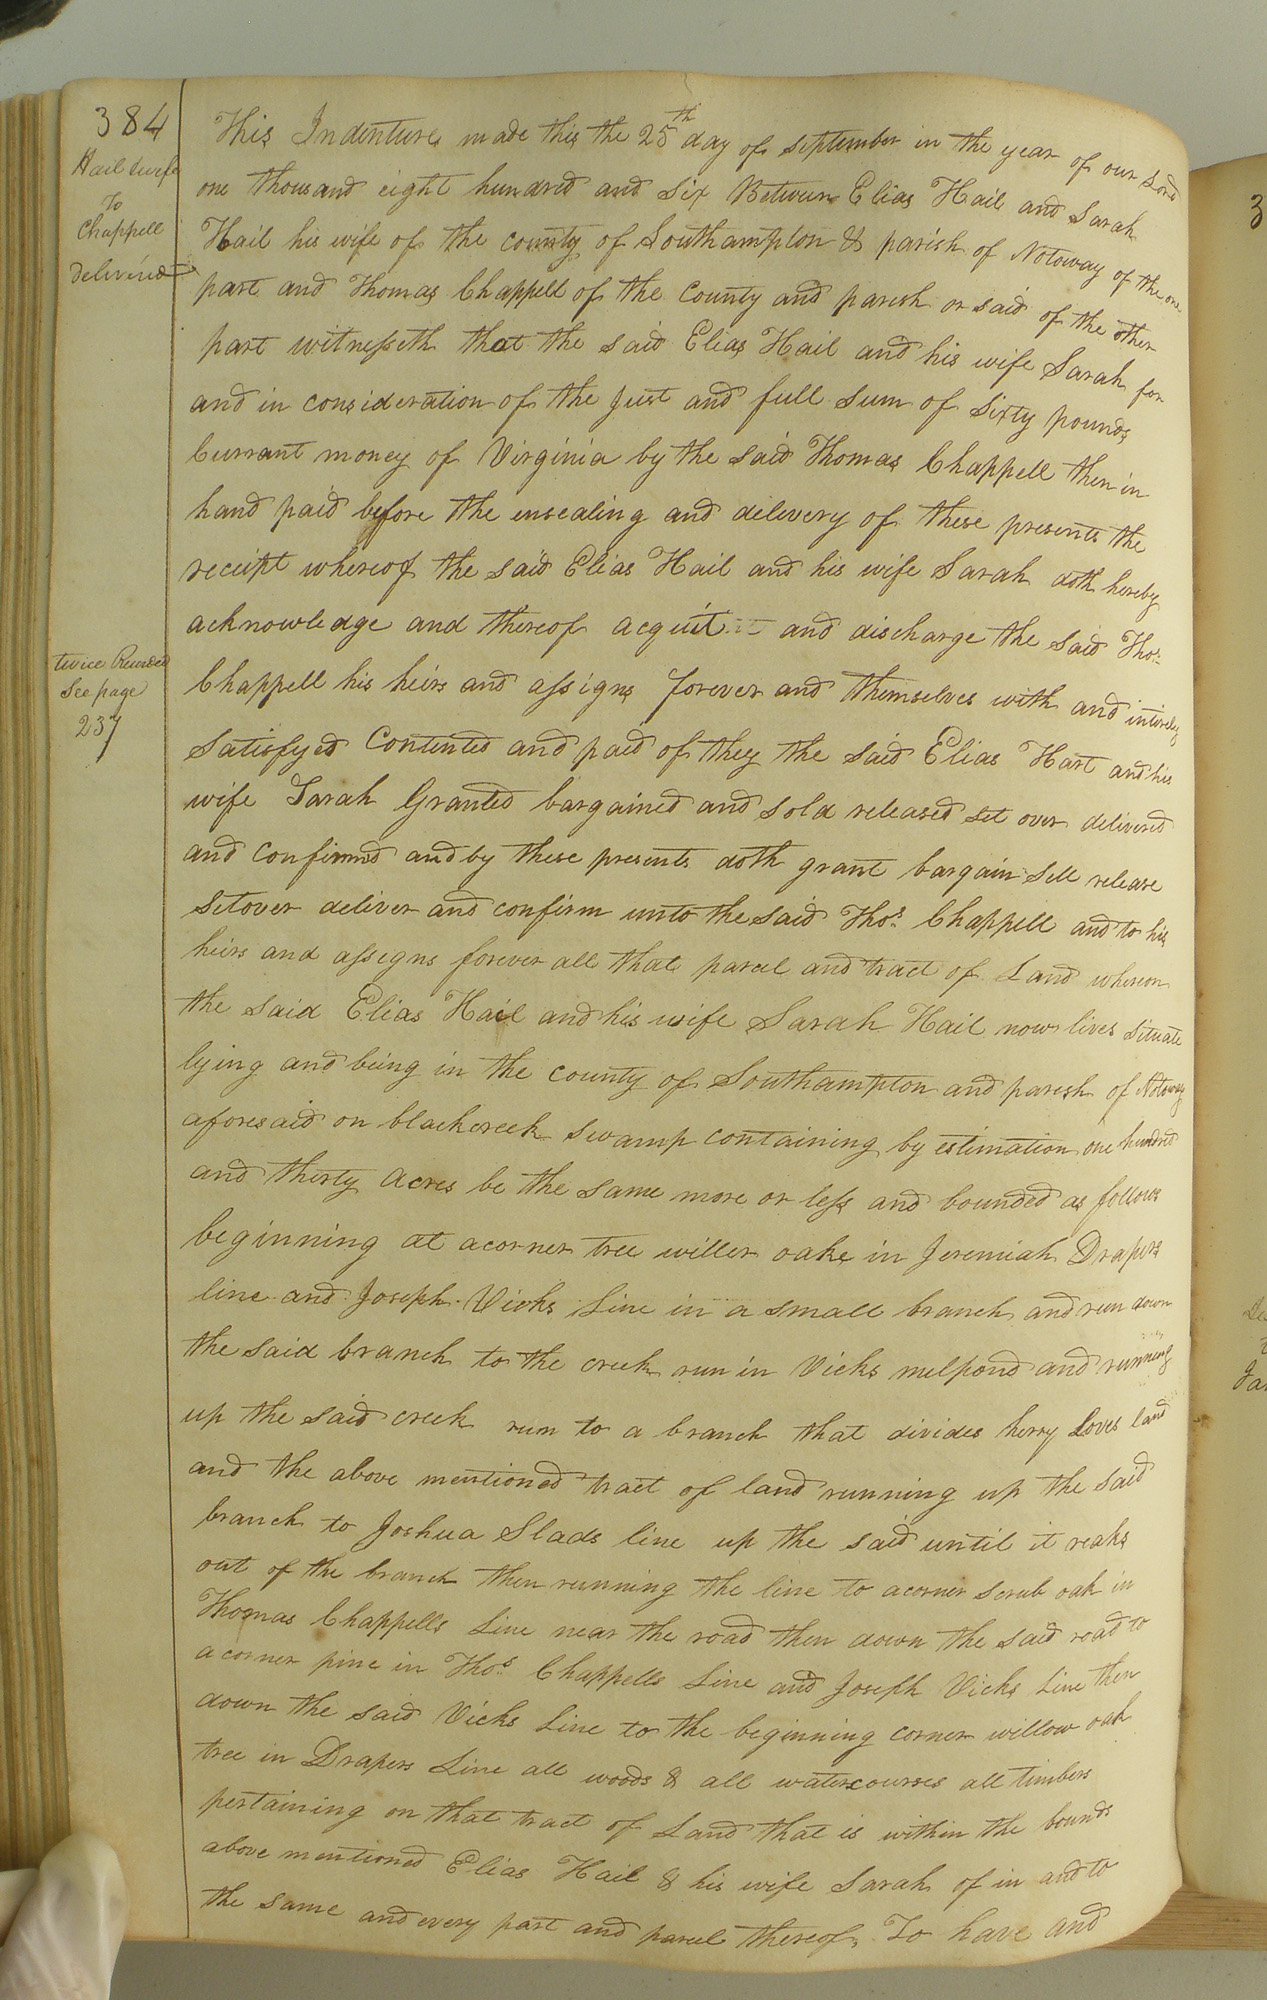 384
Hail & wife
To
Chappell
delivered
twice Recorded
See page
237
This Indenture made this the 25th day of September in the year of our Lord
one thousand eight hundred and six Between Elias Hail and Sarah
Hail his wife of the county of Southampton & parish of Notoway of the one
part and Thomas Chappell of the County and parish or said of the other
part witnesseth that the said Elias Hail and his wife Sarah for
and in consideration of the Just and full Sum of Sixty pounds
Currant money of Virginia by the said Thomas Chappell then in
hand paid before the ensealing and delivery of these presents the
receipt whereof the said Elias Hail and his wife Sarah doth hereby
acknowledge and thereof acquit and discharge the said Thos.
Chappell his heirs and assigns forever and themselves with and intirely
Satisfyed Contented and paid of they the said Elias Hart and his
wife Sarah Granted bargained and sold released set over delivered
and confirmd and by these presents doth grant bargain sell release
setover deliver and confirm unto the said Thos. Chappell and to his
heirs and assigns forever all that parcel and tract of Land whereon
the said Elias Hail and his wife Sarah Hail now lives Situate
lying and being in the county of Southampton and parish of Notoway
aforesaid on blackcreek Swamp containing by estimation one hundred
and thirty Acres be the same more or less and bounded as follows
beginning at acorner tree willer oake in Jeremiah Drapers
line and Joseph Vicks Line in a small branch and run down
the said branch to the creek run in Vicks milpond and running
up the said creek run to a branch that divides henry Loves land
and the above mentioned tract of land running up the said
branch to Joshua Slads line up the said until it reaks
out of the branch then running the line to acorner scrub oak in
Thomas Chappells Line near the road then down the said road to
acorner pine in Thos. Chappells Line and Joseph Vicks Line then
down the said Vicks Line to the beginning corner willow oak
tree in Drapers Line all woods & all watercourses all timbers
pertaining on that tract of Land that is within the bounds
above mentioned Elias Hail & his wife Sarah of in and to
the same and every part and parcel thereof. To have and